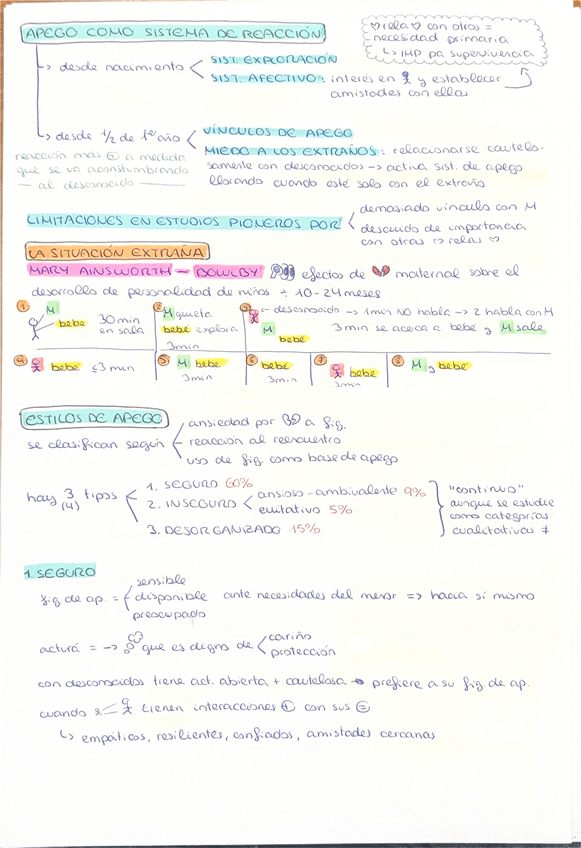 APEGO COMO SISTEMA DE REACCIÓN
♡ rela ♡ con otros =
necesidad primaria
↳ IMP pa supervivencia
↳ desde nacimiento < SIST. EXPLORACIÓN
SIST. AFECTIVO: interés en y establecer
amistades con ellas
↳ desde 1/2 de 1er año < VÍNCULOS DE APEGO
MIEDO A LOS EXTRAÑOS: relacionarse cautelo-
samente con desconocidos → activa sist. de apego
llorando cuando esté solo con el extraño
reacción más ⊕ a medida
que se va aconstumbrando
al desconocido
LIMITACIONES EN ESTUDIOS PIONEROS POR < demasiado vínculo con M
descuido de importancia
con otras relas ♡
LA SITUACIÓN EXTRAÑA
MARY AINSWORTH — BOWLBY efectos de 💔 maternal sobre el
desarrollo de personalidad de niños ÷ 10-24 meses
① M bebe 30 min en sala
② M quieta bebe explora 3min
③ desconocido → 1 min NO habla → 2 habla con M
3 min se acerca a bebé y M sale
M bebe
④ bebe ≤3 min
⑤ M bebe 3min
⑥ bebe 3min
⑦ bebe 3min
⑧ M y bebe
ESTILOS DE APEGO
se clasifican según < ansiedad por a fig.
reacción al reencuentro
uso de fig. como base de apego
hay 3 (4) tipos < 1. SEGURO 60%
2. INSEGURO < ansioso-ambivalente 9%
evitativo 5%
3. DESORGANIZADO 15%
"continuo"
aunque se estudie
como categorías
cualitativas ≠
1. SEGURO
fig de ap. = sensible
disponible ante necesidades del menor => hacia sí mismo
preocupado
actura = → que es digno de < cariño
protección
con desconocidos tiene act. abierta + cautelosa → prefiere a su fig. de ap.
cuando tienen interacciones ⊕ con sus ⊜
↳ empáticos, resilientes, confiados, amistades cercanas